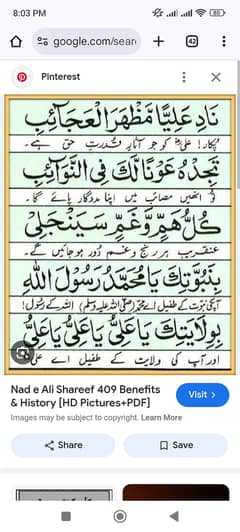 8:03 PM
google.com/sear
42
Pinterest
نَادِ عَلِيًّا مَّظْهَرَ الْعَجَائِبِ
پکار! علیؑ کو جو آثارِ قدرتِ حق ہے۔
تَجِدْهُ عَوْنًا لَّكَ فِي النَّوَائِبِ
تُو انھیں مصائب میں اپنا مددگار پائے گا۔
كُلُّ هَمٍّ وَّغَمٍّ سَيَنْجَلِي
عنقریب ہر رنج و غم دور ہو جائیں گے۔
بِنُبُوَّتِكَ يَا مُحَمَّدُ رَسُوْلَ اللهِ
آپکی نبوت کے طفیل اے محمد (صلی اللہ علیہ وسلم) اللہ کے رسول!
بِوِلَايَتِكَ يَا عَلِيُّ يَا عَلِيُّ يَا عَلِيُّ
اور آپ کی ولایت کے طفیل اے علی
Nad e Ali Shareef 409 Benefits & History [HD Pictures+PDF]
Visit >
Images may be subject to copyright. Learn More
Share
Save